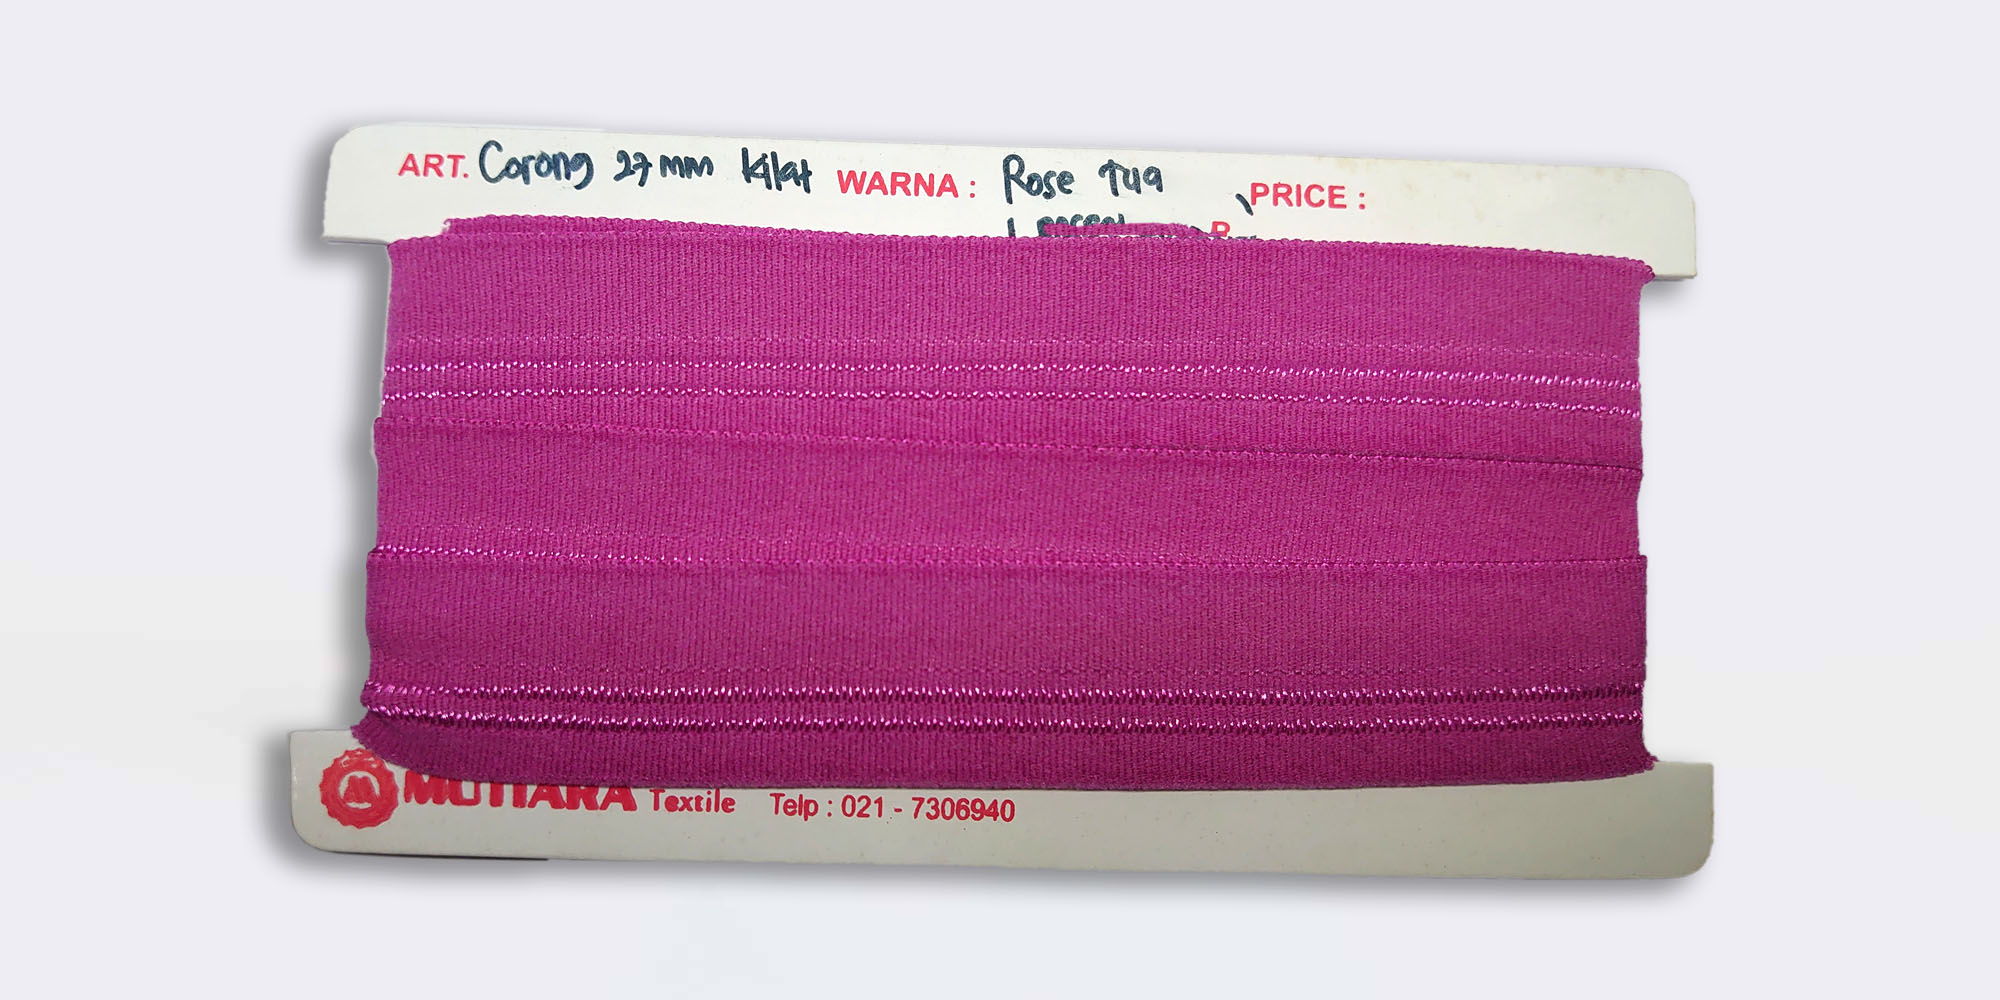 ART. Corong 27 mm Kilat WARNA : Rose Tua PRICE :
MUTIARA Textile Telp : 021 - 7306940